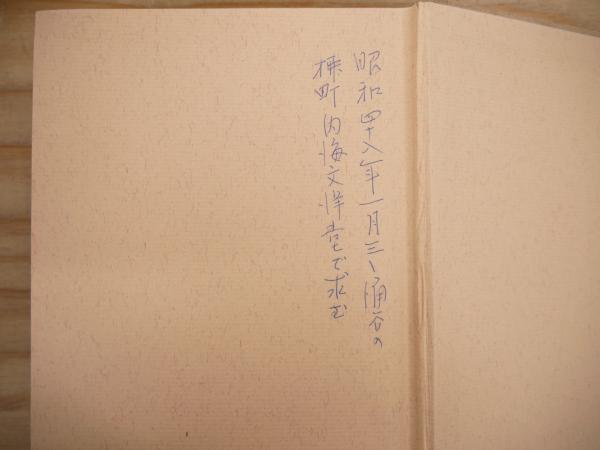 昭和四十八年一月三、涌谷の
町内海文洋堂で求む